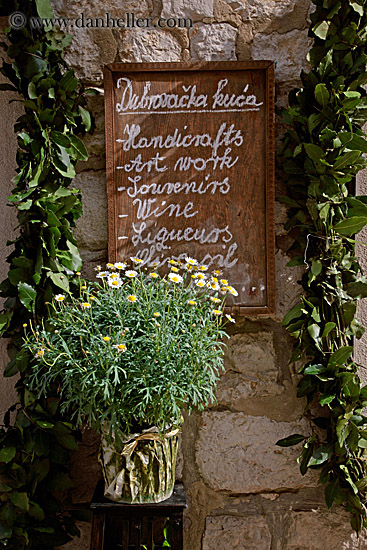 © www.danheller.com
Dubrovačka kuća
- Handicrafts
- Art work
- Souvenirs
- Wine
- Liqueurs
oil